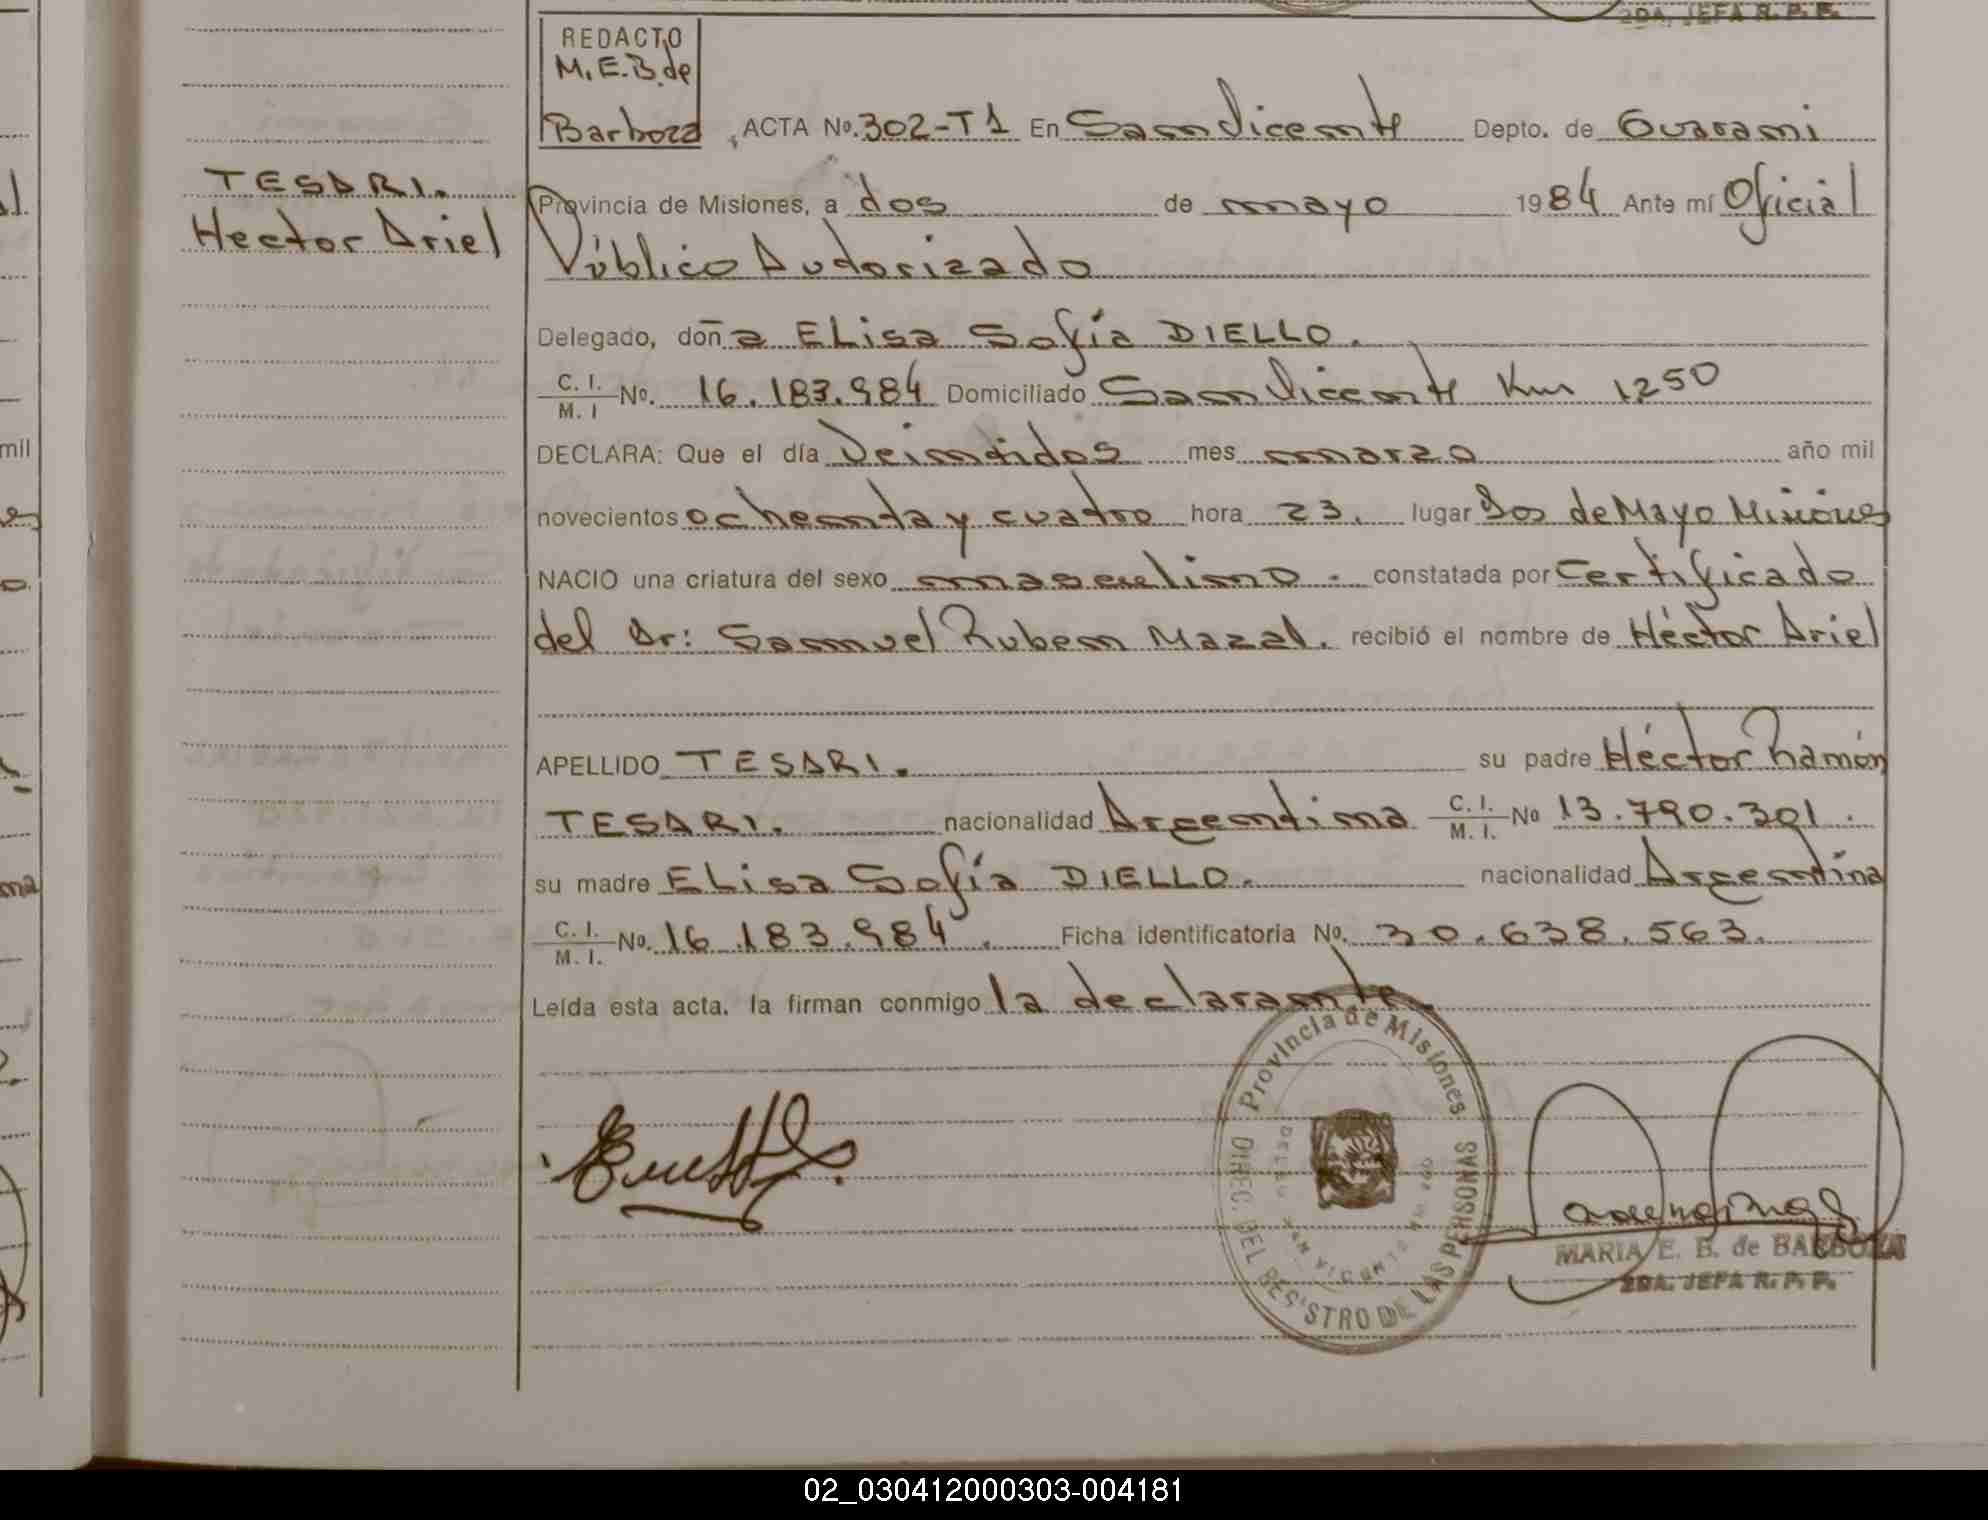 2DA. JEFA R. P. P.
REDACTO
M.E.B. de
Barboza
ACTA No. 302-T1 En San Vicente Depto. de Guarani
TESARI.
Hector Ariel
Provincia de Misiones, a dos de mayo 1984 Ante mí Oficial
Público Autorizado
Delegado, doña ELisa Sofía DIELLO.
C. I.
M. I No. 16.183.984 Domiciliado San Vicente Km 1250
DECLARA: Que el día Veintidos mes marzo año mil
novecientos ochenta y cuatro hora 23. lugar Dos de Mayo Misiones
NACIO una criatura del sexo masculino. constatada por Certificado
del Dr: Samuel Ruben Mazal. recibió el nombre de Héctor Ariel
APELLIDO TESARI. su padre Héctor Ramón
TESARI. nacionalidad Argentina C. I. M. I. No 13.790.301.
su madre ELisa Sofía DIELLO. nacionalidad Argentina
C. I.
M. I. No. 16.183.984. Ficha identificatoria No. 30.638.563.
Leída esta acta, la firman conmigo la declarante.
Provincia de Misiones
DIREC. DEL REGISTRO DE LAS PERSONAS
MARIA E. B. de BARBOZA
2DA. JEFA R. P. P.
mil
02_030412000303-004181